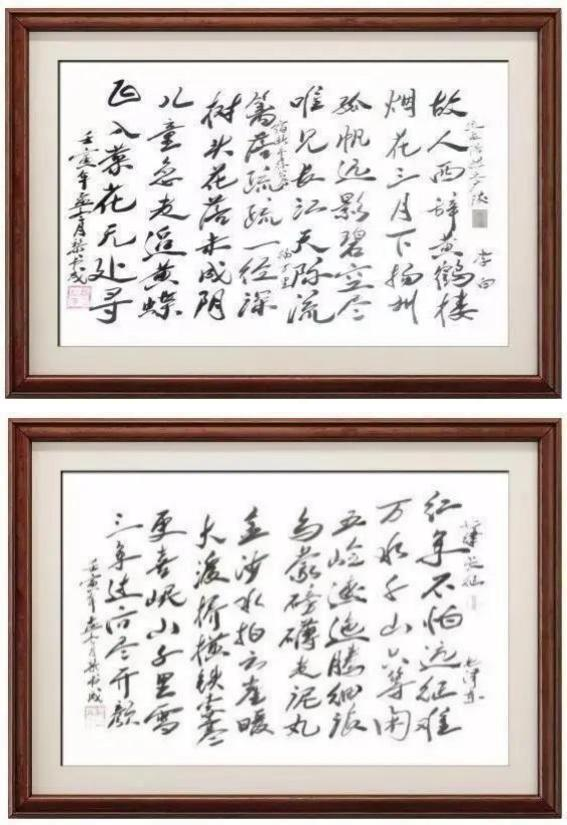 送孟浩然之广陵
李白
故人西辞黄鹤楼
烟花三月下扬州
孤帆远影碧空尽
唯见长江天际流
宿新市徐公店
杨万里
篱落疏疏一径深
树头花落未成阴
儿童急走追黄蝶
飞入菜花无处寻
壬寅年 月
七律长征
毛泽东
红军不怕远征难
万水千山只等闲
五岭逶迤腾细浪
乌蒙磅礴走泥丸
金沙水拍云崖暖
大渡桥横铁索寒
更喜岷山千里雪
三军过后尽开颜
壬寅年 月